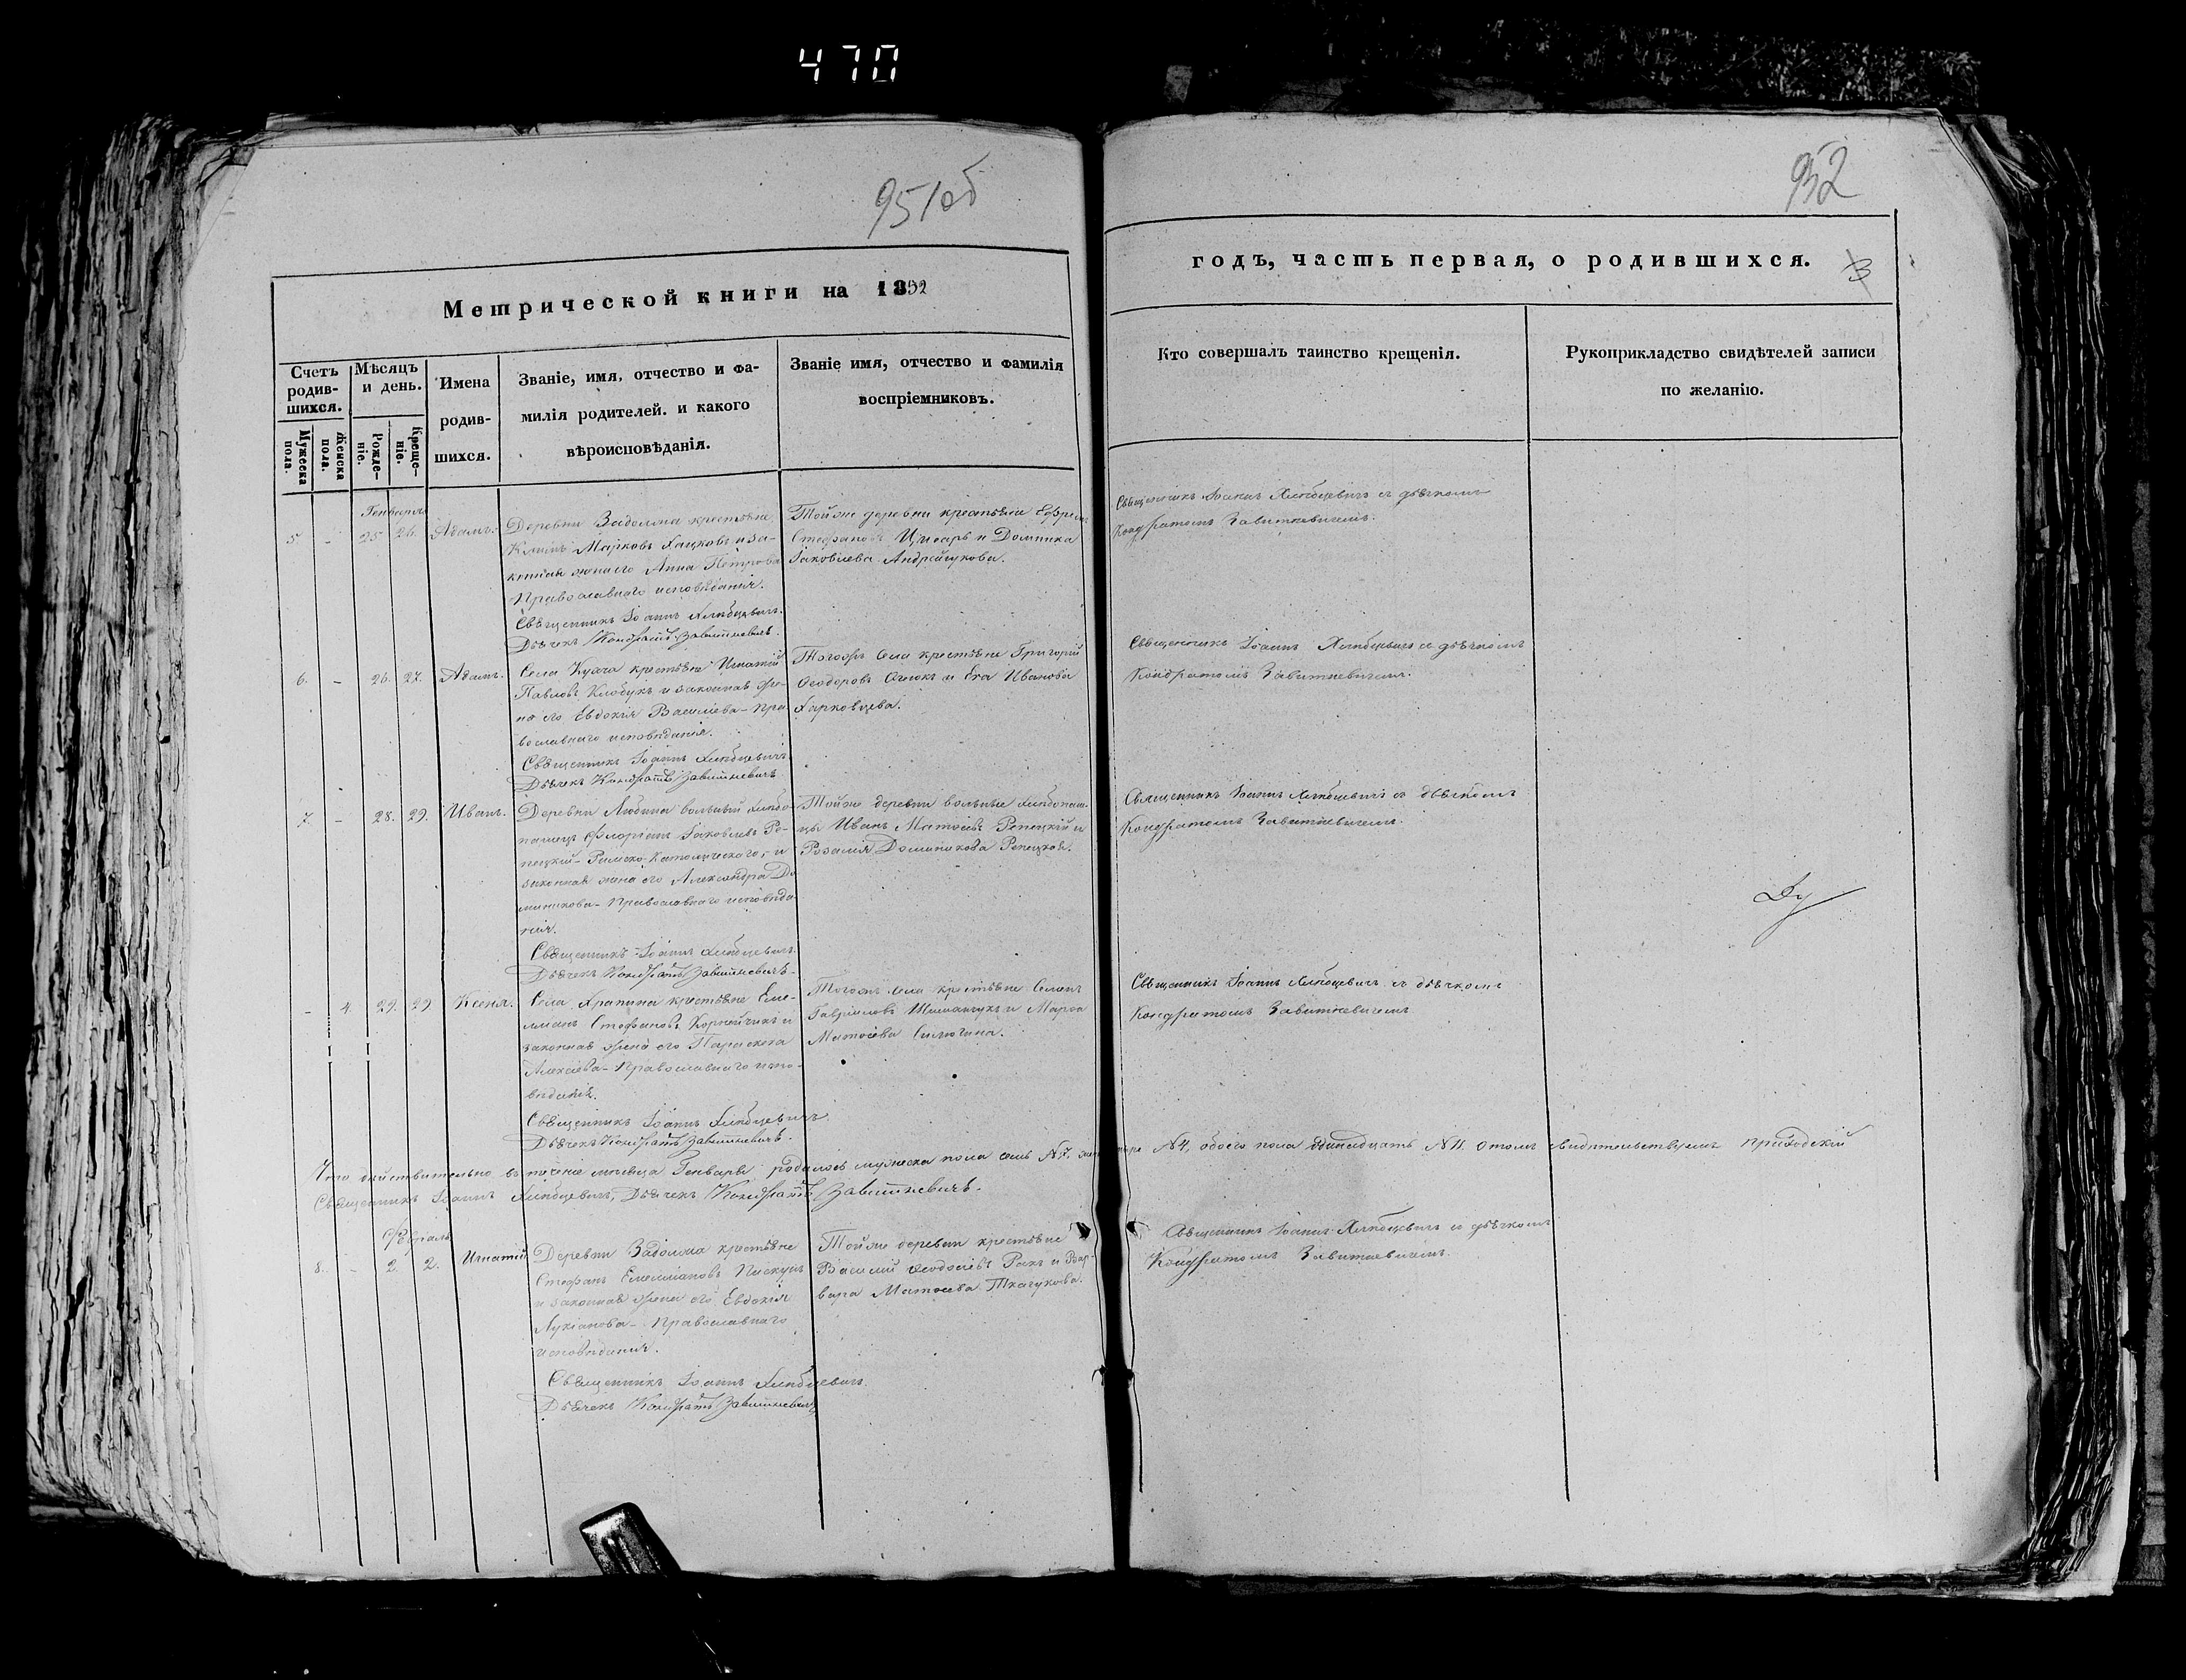 470
951об
952
Метрической книги на 1852
годъ, часть первая, о родившихся.
3
Счетъ родив-шихся.
Мѣсяцъ и день.
Имена родив-шихся.
Званіе, имя, отчество и фа-
милія родителей. и какого
вѣроисповѣданія.
Званіе имя, отчество и фамилія
воспріемниковъ.
Кто совершалъ таинство крещенія.
Рукоприкладство свидѣтелей записи
по желанію.
Мужеска пола.
Женска пола.
Рожде-ніе.
Креще-ніе.
Генварь
5 - 25 26. Адамъ.
Деревни Задолжа крестьяне
Климъ Марковъ и за-
конная жена его Анна Петрова
Православнаго исповѣданія.
Священникъ Іоаннъ Хлѣбцевичъ.
Дьячекъ Кондратъ Завитневичъ.
Тойже деревни крестьяне Ефремъ
Стефановъ и Доминика
Іаковлева Андрейчукова.
Священникъ Іоаннъ Хлѣбцевичъ съ дьячкомъ
Кондратомъ Завитневичемъ.
6. - 26. 27. Адамъ.
Села крестьяне Игнатій
Павловъ Клобукъ и законная же-
на его Евдокія Васильева - Пра-
вославнаго исповѣданія.
Священникъ Іоаннъ Хлѣбцевичъ
Дьячекъ Кондратъ Завитневичъ
Тогожъ села крестьяне Григорій
Ѳеодоровъ и Ева Иванова
Харковцева.
Священникъ Іоаннъ Хлѣбцевичъ съ дьячкомъ
Кондратомъ Завитневичемъ.
7. - 28. 29. Иванъ.
Деревни Людина вольный хлѣбо-
пашецъ Флоріанъ Іаковлевъ Ре-
пецкій - Римско-Католическаго, и
законная жена его Александра До-
миникова - Православнаго исповѣда-
нія.
Священникъ Іоаннъ Хлѣбцевичъ.
Дьячекъ Кондратъ Завитневичъ.
Тойже деревни вольные хлѣбопаш-
цы Иванъ Матѳіевъ Репецкій и
Розалія Доминикова Репецкая.
Священникъ Іоаннъ Хлѣбцевичъ съ дьячкомъ
Кондратомъ Завитневичемъ.
- 4. 29. 29 Ксенія.
Села Храпина крестьяне Еме-
ліанъ Стефановъ Корнейчикъ и
законная жена его Параскева
Алексіева - Православнаго испо-
вѣданія.
Священникъ Іоаннъ Хлѣбцевичъ.
Дьячекъ Кондратъ Завитневичъ.
Тогожъ села крестьяне Семенъ
Гавріиловъ Шиманчукъ и Марѳа
Матѳіева
Священникъ Іоаннъ Хлѣбцевичъ съ дьячкомъ
Кондратомъ Завитневичемъ
Что дѣйствительно въ теченіе мѣсяца Генваря родилось мужеска пола семь №7. четыре №4, обоего пола одинадцать №11. о томъ свидѣтельствуемъ приходскій
Священникъ Іоаннъ Хлѣбцевичъ, Дьячекъ Кондратъ Завитневичъ.
Февраль
8. - 2. 2. Игнатій
Деревни Задолжа крестьяне
Стефанъ Емеліановъ Пискунъ
и законная жена его Евдокія
Лукіанова - Православнаго
исповѣданія.
Священникъ Іоаннъ Хлѣбцевичъ.
Дьячекъ Кондратъ Завитневичъ
Тойже деревни крестьяне
Василій Ѳеодосіевъ Ракъ и Вар-
вара Матѳеева Ткачукова.
Священникъ Іоаннъ Хлѣбцевичъ съ дьячкомъ
Кондратомъ Завитневичемъ.